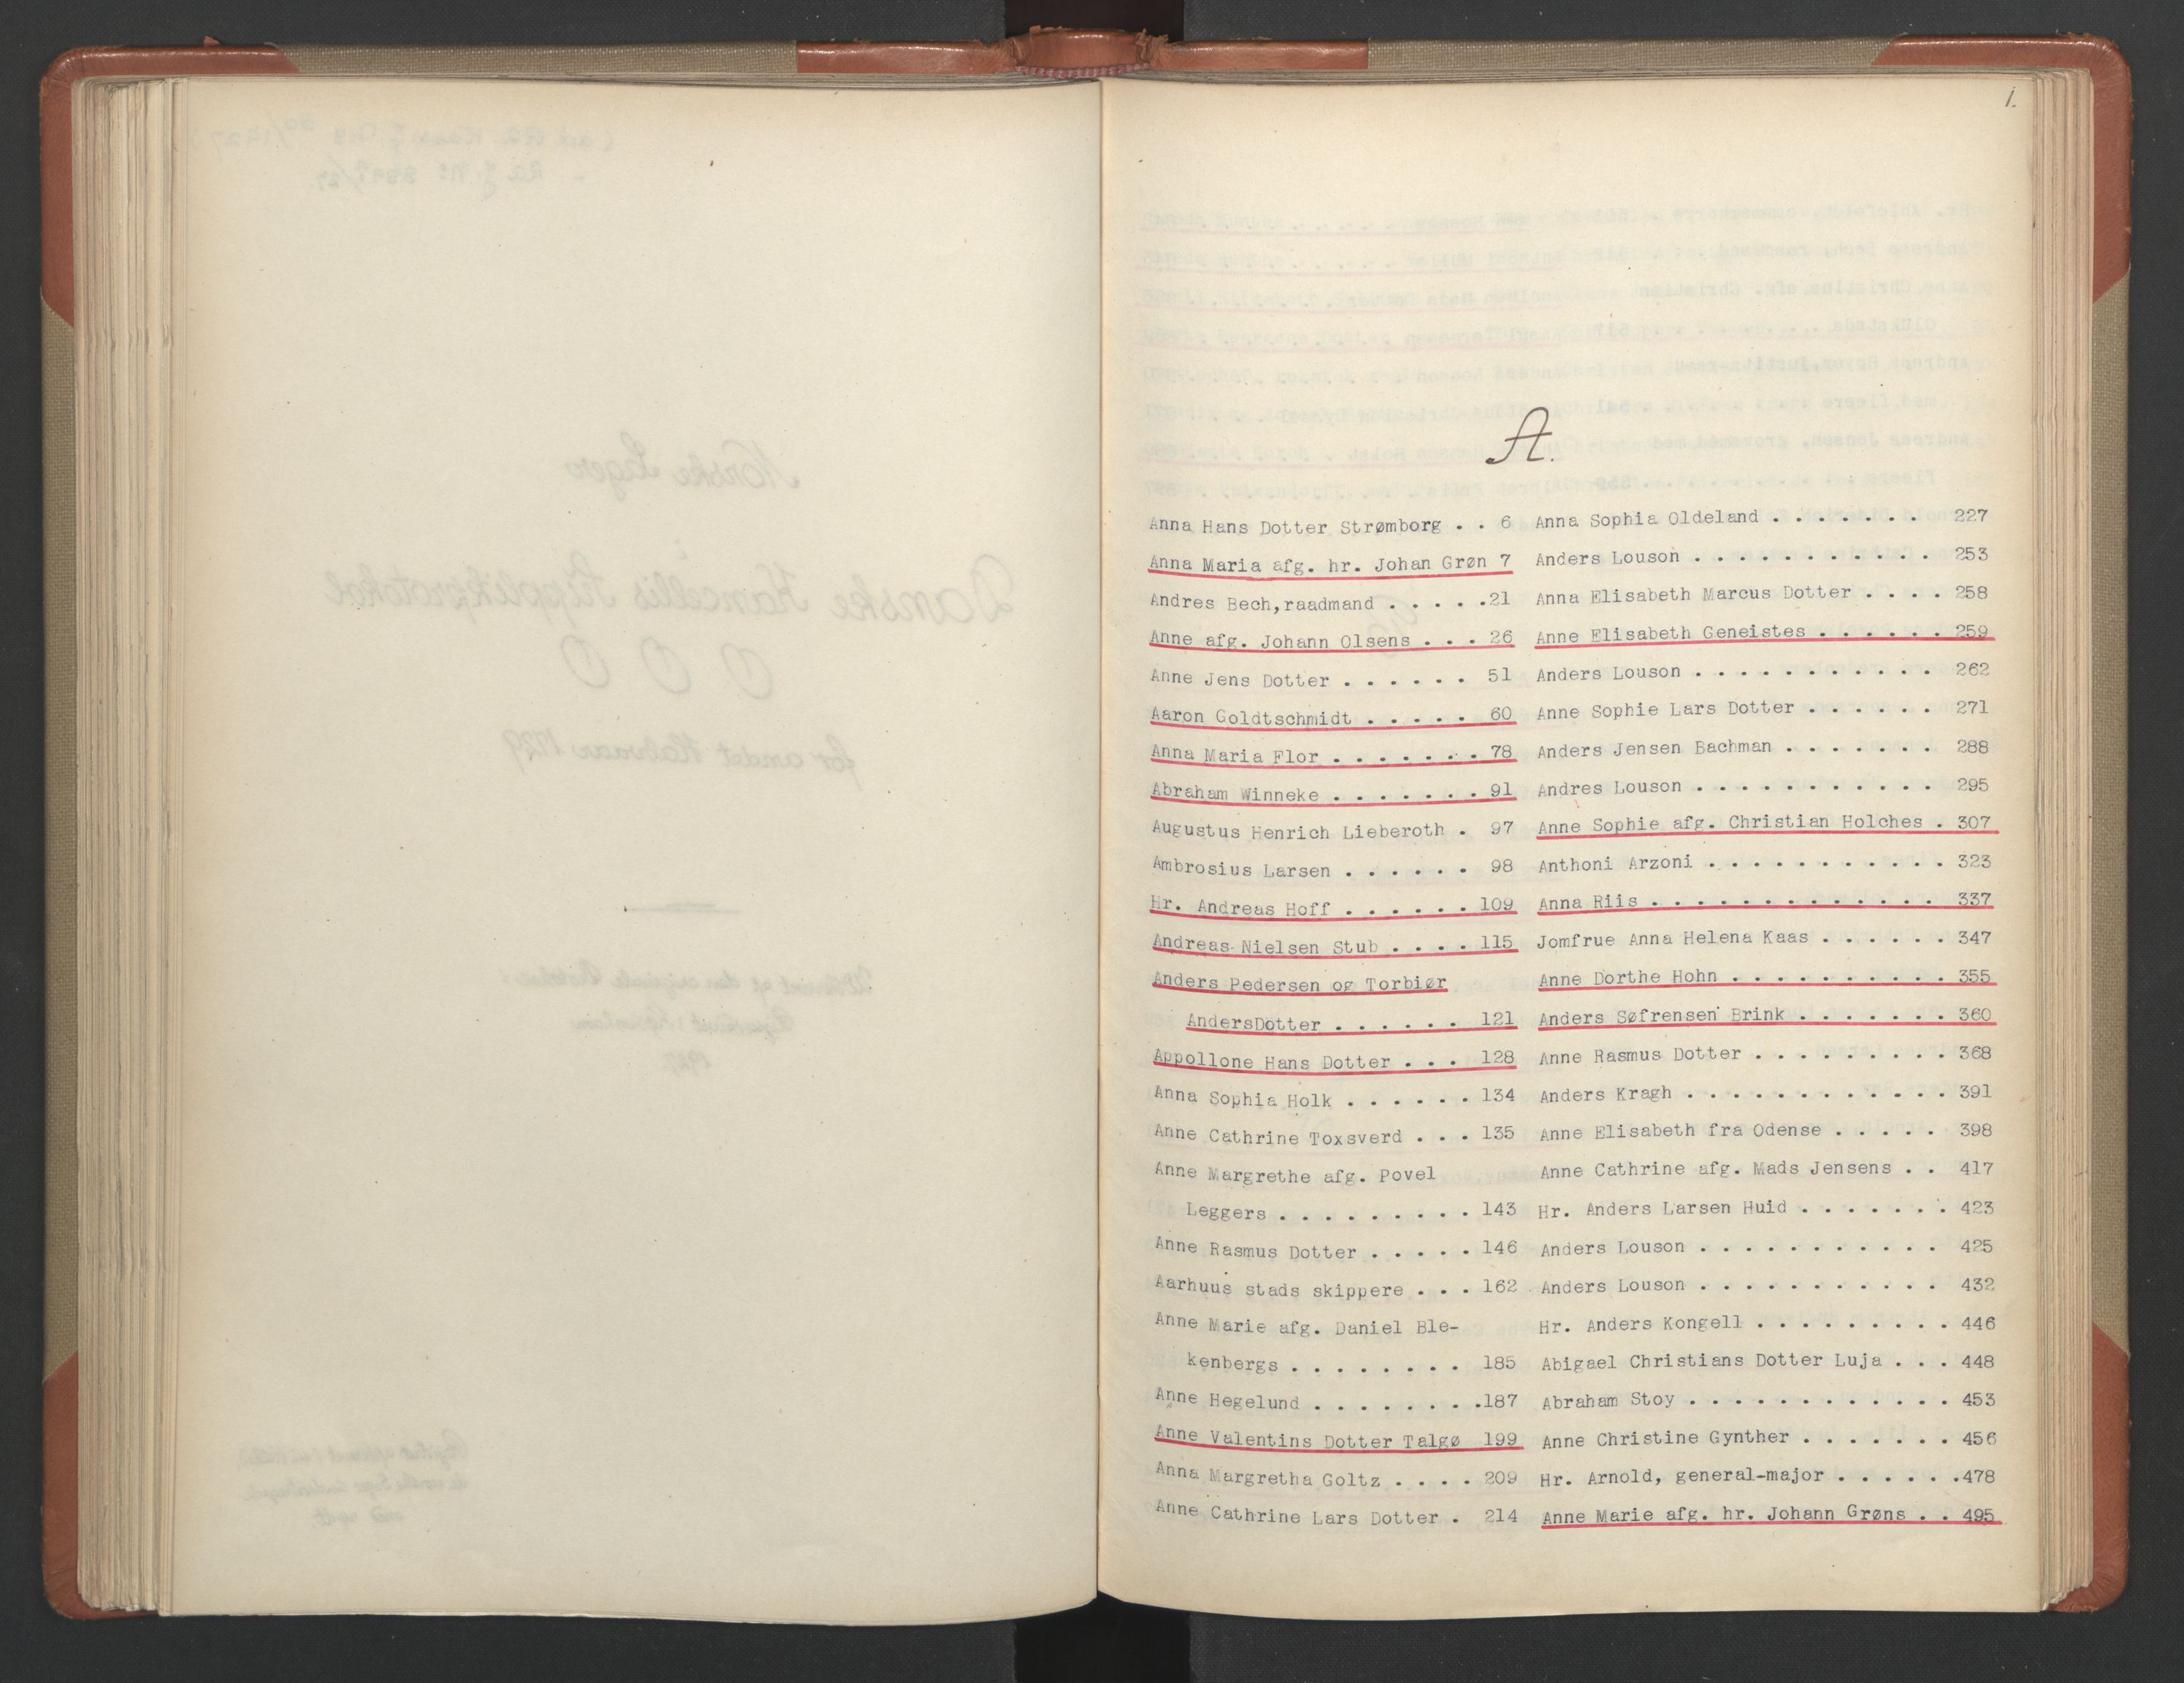 1.
A.
Anna Hans Dotter Strømborg . . 6
Anna Maria afg. hr. Johan Grøn 7
Andres Bech, raadmand . . . . .21
Anne afg. Johann Olsens . . . 26
Anne Jens Dotter . . . . . . 51
Aaron Goldtschmidt . . . . . 60
Anna Maria Flor . . . . . . . 78
Abraham Winneke . . . . . . . 91
Augustus Henrich Lieberoth . 97
Ambrosius Larsen . . . . . . 98
Hr. Andreas Hoff . . . . . . 109
Andreas Nielsen Stub . . . . 115
Anders Pedersen og Torbiør
AndersDotter . . . . . . 121
Appollone Hans Dotter . . . 128
Anna Sophia Holk . . . . . . 134
Anne Cathrine Toxsverd . . . 135
Anne Margrethe afg. Povel
Leggers . . . . . . . . . 143
Anne Rasmus Dotter . . . . . 146
Aarhuus stads skippere . . . 162
Anne Marie afg. Daniel Ble-
kenbergs . . . . . . . . 185
Anne Hegelund . . . . . . . .187
Anne Valentins Dotter Talgø 199
Anna Margretha Goltz . . . . 209
Anne Cathrine Lars Dotter . 214
Anna Sophia Oldeland . . . . . . . 227
Anders Louson . . . . . . . . . . . 253
Anna Elisabeth Marcus Dotter . . . . 258
Anne Elisabeth Geneistes . . . . . . 259
Anders Louson . . . . . . . . . . . 262
Anne Sophie Lars Dotter . . . . . . 271
Anders Jensen Bachman . . . . . . . 288
Andres Louson . . . . . . . . . . . 295
Anne Sophie afg. Christian Holches . 307
Anthoni Arzoni . . . . . . . . . . . 323
Anna Riis . . . . . . . . . . . . . 337
Jomfrue Anna Helena Kaas . . . . . . 347
Anne Dorthe Hohn . . . . . . . . . . 355
Anders Søfrensen Brink . . . . . . . 360
Anne Rasmus Dotter . . . . . . . . . 368
Anders Kragh . . . . . . . . . . . . 391
Anne Elisabeth fra Odense . . . . . 398
Anne Cathrine afg. Mads Jensens . . 417
Hr. Anders Larsen Huid . . . . . . . 423
Anders Louson . . . . . . . . . . . 425
Anders Louson . . . . . . . . . . . 432
Hr. Anders Kongell . . . . . . . . . 446
Abigael Christians Dotter Luja . . . 448
Abraham Stoy . . . . . . . . . . . . 453
Anne Christine Gynther . . . . . . . 456
Hr. Arnold, general-major . . . . . .478
Anne Marie afg. hr. Johann Grøns . . 495